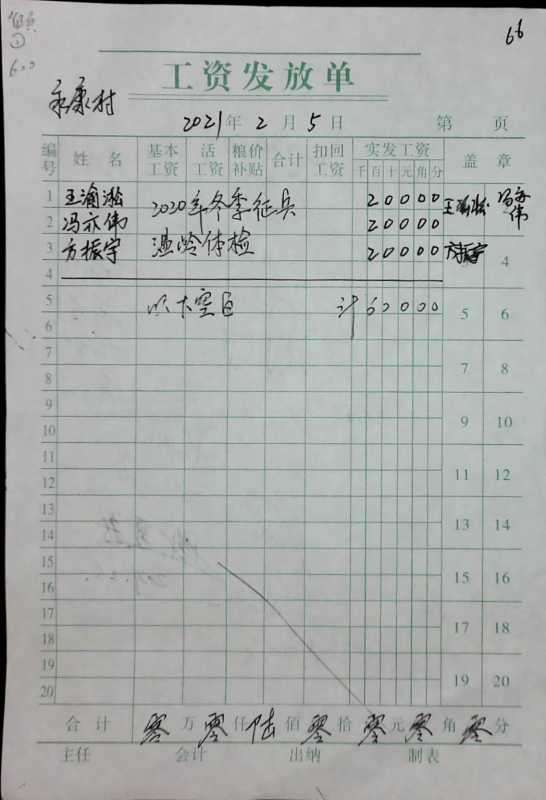 66
600
工资发放单
永康村
2021年2月5日 第 页
编号 姓名 基本工资 活工资 粮价补贴 合计 扣回工资 实发工资 千百十元角分 盖章
1 王瀹淞 2020年冬季征兵 20000 王瀹淞 冯亦伟
2 冯亦伟 20000
3 方振宇 适龄体检 20000 方振宇 3 4
4
5 以下空白 计 60000 5 6
6
7 7 8
8
9 9 10
10
11 11 12
12
13 13 14
14
15 15 16
16
17 17 18
18
19 19 20
20
合计 零万零仟陆佰零拾零元零角零分
主任 会计 出纳 制表